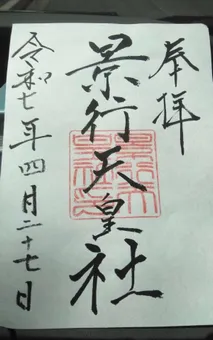 奉拝
景行天皇社
令和七年四月二十七日